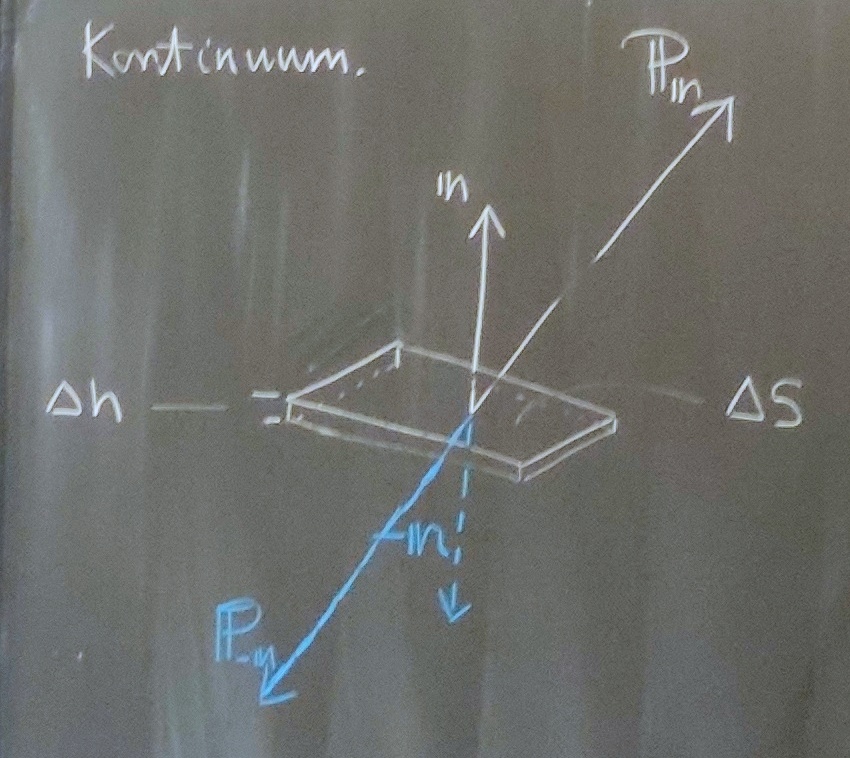 Kontinuum.
ℙₙ
𝕟
Δh
ΔS
-𝕟
ℙ₋ₙ